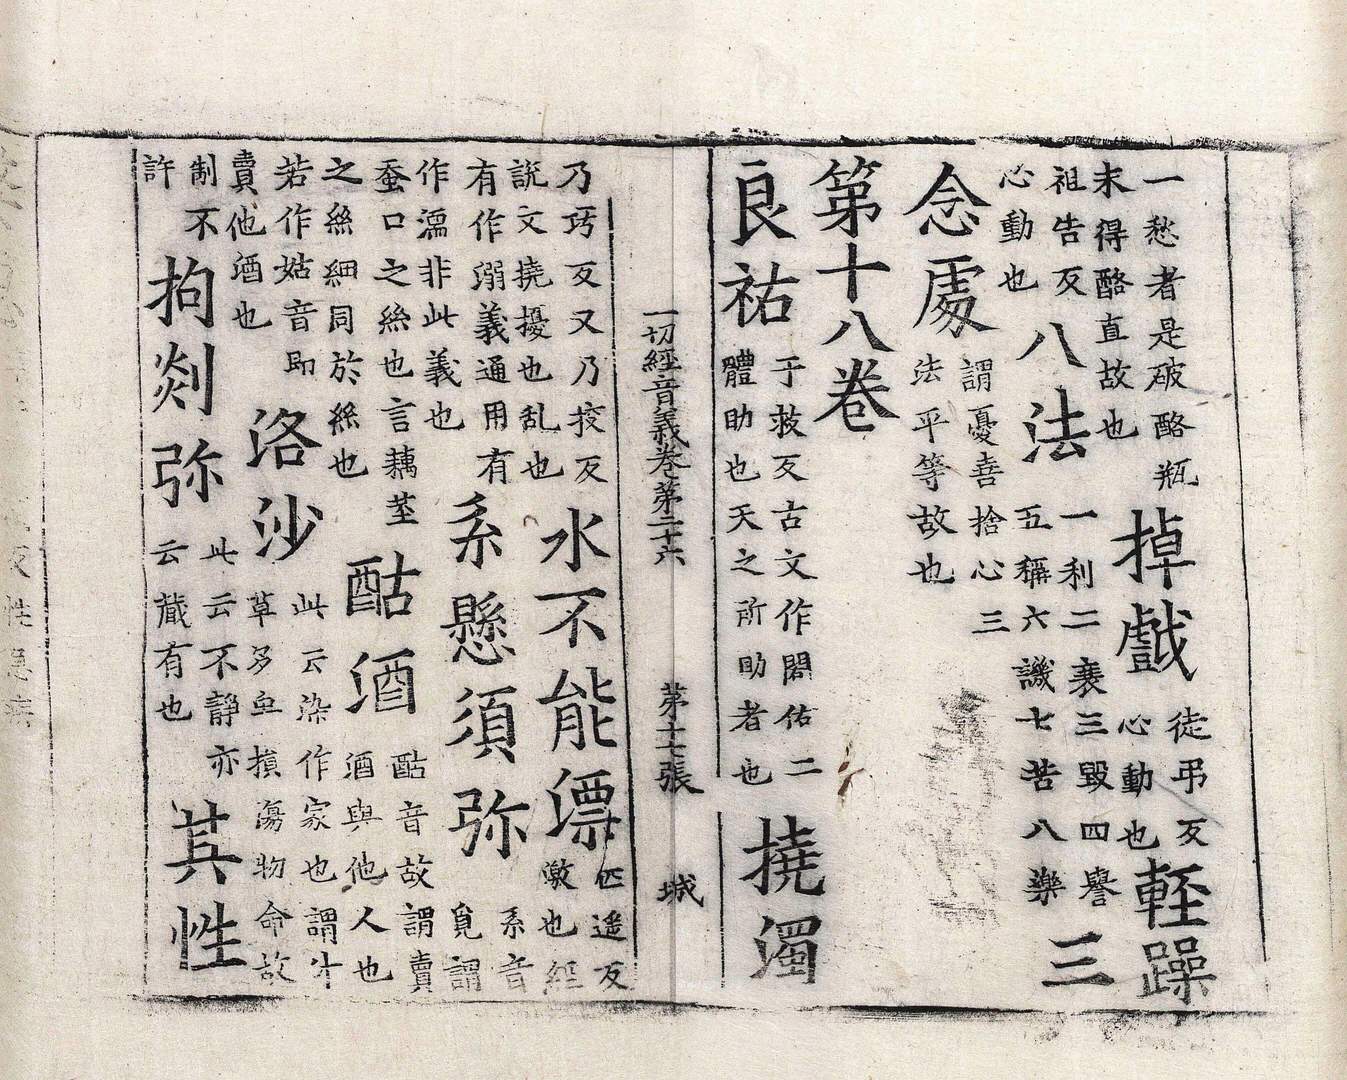 一愁者是破酪瓶未得酪直故也掉戲徒弔反心動也輕躁
祖告反心動也八法一利二衰三毀四譽五稱六譏七苦八樂三
念處謂憂喜捨心三法平等故也
第十八卷
良祐于救反古文作閤佑二體助也天之所助者也撓濁
一切經音義卷第二十六 第十七張 城
乃巧反又乃挍反說文撓擾也乱也水不能漂匹遥反漱也經
有作溺義通用有作濡非此義也系懸須弥系音覓謂
蚕口之絲也言藕茎之絲細同於絲也酤酒酤音故謂賣酒與他人也
若作姑音即賣他酒也洛沙此云染作家也謂斗草多血損傷物命故
制不許拘剡弥此云不静亦云蔵有也其性
反性急疾